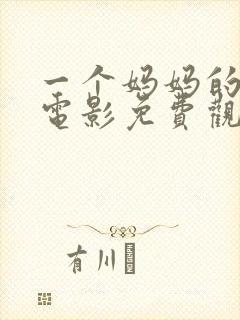 一个妈妈的
電影免費觀
有川